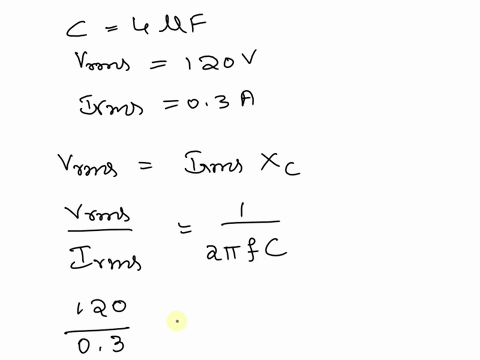 C = 4 μF
Vrms = 120 V
Irms = 0.3 A
Vrms = Irms XC
Vrms / Irms = 1 / 2πfC
120 / 0.3